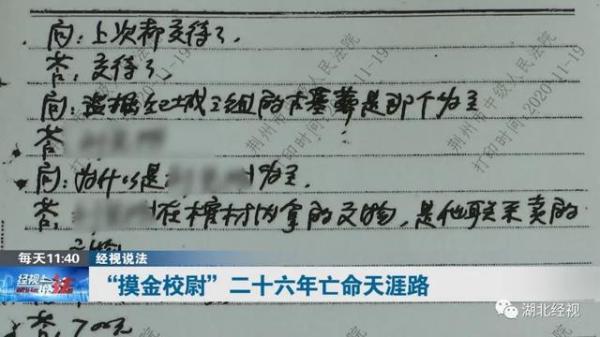 问：上次都交待了。
答：交待了。
问：盗掘纪城三组的古墓葬是那个为主
答：
问：为什么是 为主.
答： 在棺材内拿的文物，是他联系卖的
答：700元
每天11:40 经视说法
经视说法
“摸金校尉”二十六年亡命天涯路
湖北经视
荆州市中级人民法院
打印时间：2020-11-19
荆州市中级人民法院
打印时间：2020-11-19